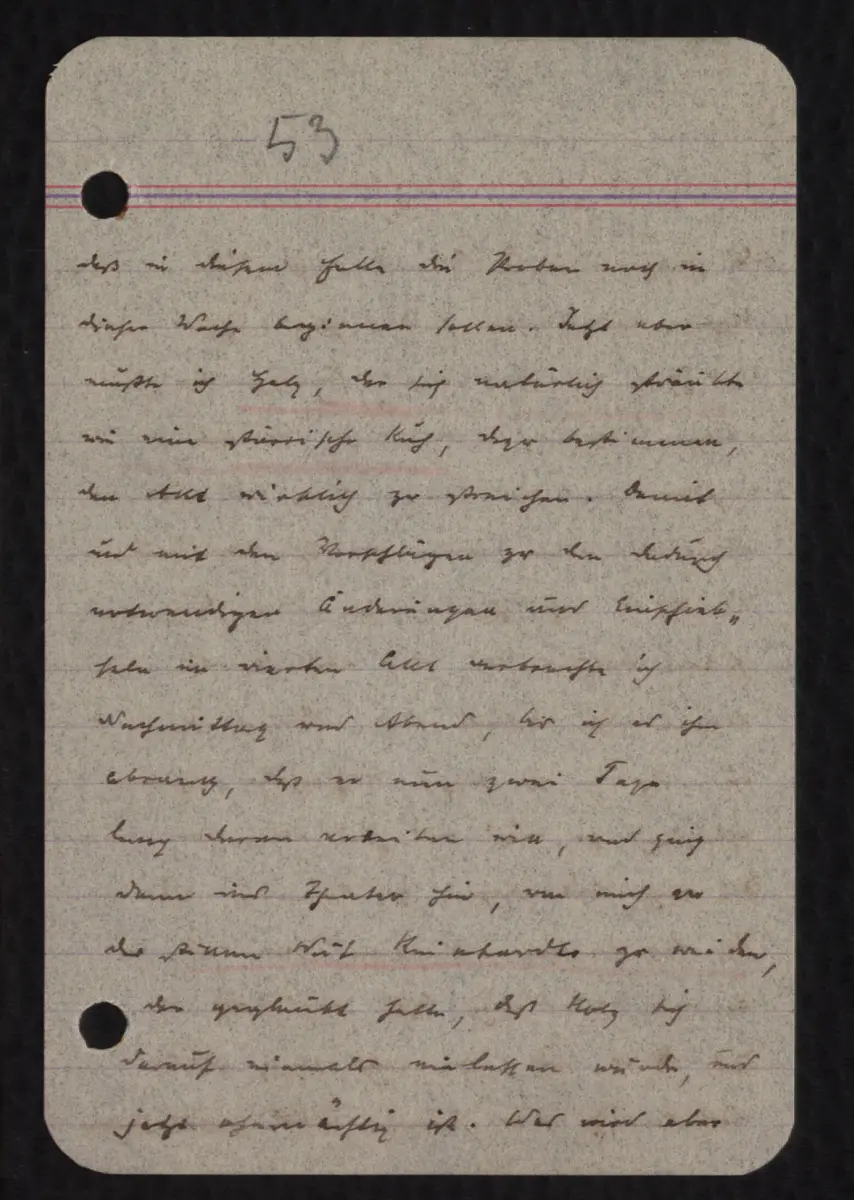 53
daß in diesem Falle die Proben noch in
dieser Woche beginnen sollen. Jetzt aber
mußte ich Holz, der sich natürlich sträubte
wie eine störrische Kuh, dazu bestimmen,
den Akt wirklich zu streichen. Damit
und mit den Vorschlägen zu den dadurch
notwendigen Änderungen und Einschieb„
seln im vierten Akt verbrachte ich
Nachmittag und Abend, bis ich es ihm
abrang, daß er nun zwei Tage
lang daran arbeiten will, und ging
dann ins Theater hin, um mich an
der stillen Wut Reinhardts zu weiden,
der geglaubt hatte, daß Holz sich
darauf niemals einlassen würde, und
jetzt ohnmächtig ist. Was wird aber